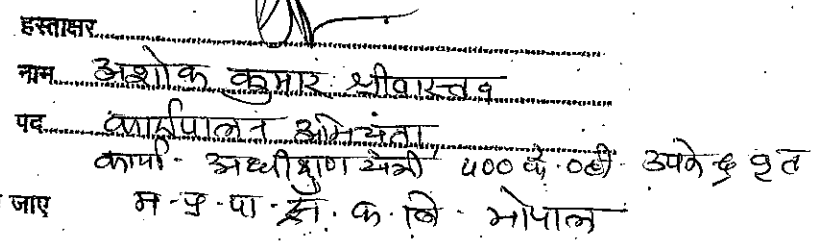 हस्ताक्षर
नाम अशोक कुमार श्रीवास्तव
पद कार्यपालन अभियंता
कार्या- अधीक्षण यंत्री 400 के.व्ही. उपकेन्द्र वृत
जाए म.प्र.पा.ट्रां.क.लि. भोपाल